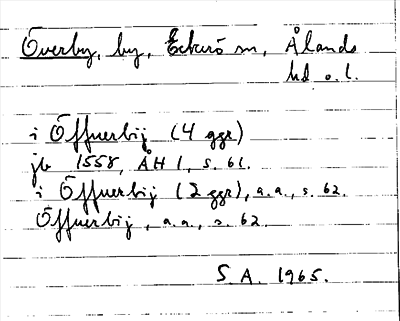 Överby, by, Eckerö sn, Ålands
hd o. l.
i Öffuerbij (4 ggr)
jb 1558, ÅH 1, s. 61.
i Öffuerbij (2 ggr), a.a., s. 62.
Öffuerbij, a.a., s. 62.
S.A. 1965.